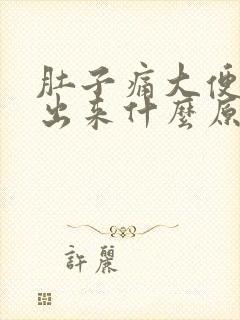 肚子痛大便
出来什麼原
許麗